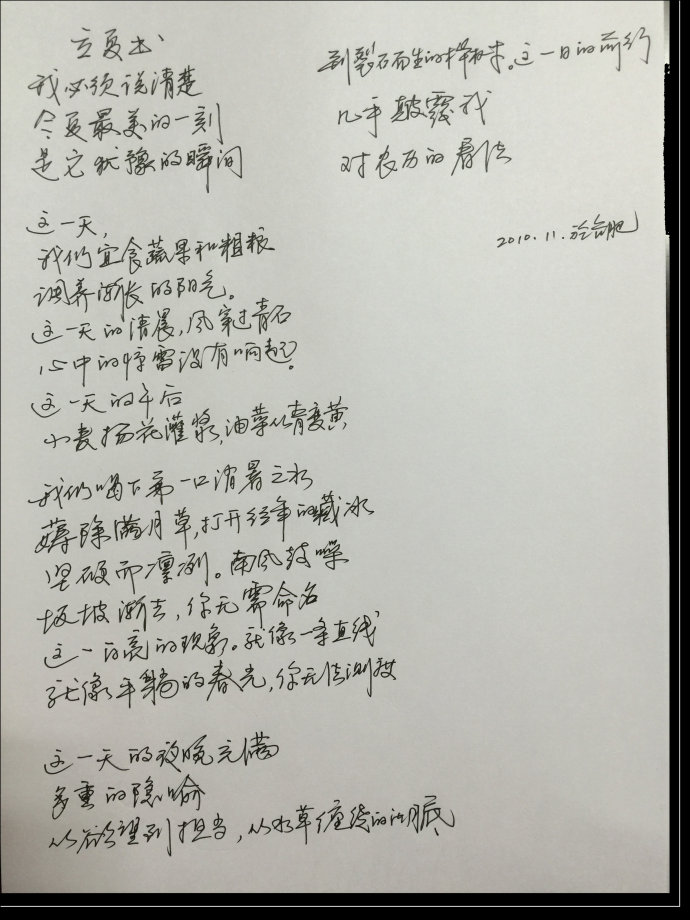 立夏书
我必须说清楚
今夏最美的一刻
是它犹豫的瞬间
这一天，
我们宜食蔬果和粗粮
调养渐长的阳气。
这一天的清晨，风穿过青石
心中的惊雷没有响起。
这一天的午后
小麦扬花灌浆，油菜从青变黄
我们喝下第一口消暑之水
薅除满月草，打开经年的藏冰
坚硬而凛冽。南风鼓噪
坂坡渐去，你无需命名
这一日高的现象。就像一条直线
就像平躺的春光，你无法测度
这一天的夜晚充满
多重的隐喻
从欲望到担当，从水草缠绕的河底
到裂石而生的榉林。这一日的前行
几乎颠覆我
对农历的看法
2010.11.于合肥